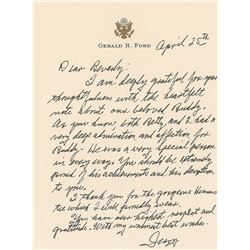 GERALD R. FORD
April 25th
Dear Beverly:
I am deeply grateful for your
thoughtfulness with the heartfelt
note about our beloved Buddy.
As you know both Betty and I had a
very deep admiration and affection for
Buddy. He was a very special person
in every way. You should be
proud of his achievements and his devotion
to you.
I thank you for the gorgeous Hermes
tie which I will proudly wear.
You have our highest respect and
gratitude. With my warmest best wishes.
Jerry